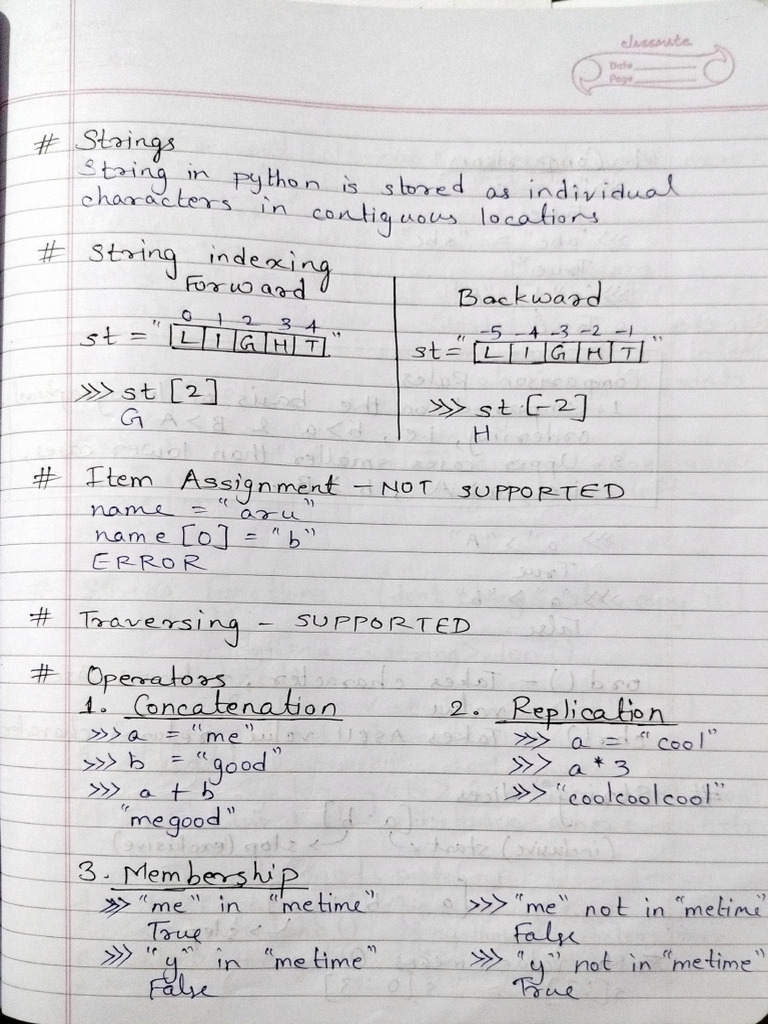 classmate
Date
Page
# Strings
String in python is stored as individual
characters in contiguous locations
# String indexing
Forward
0 1 2 3 4
st = " L I G H T "
>>> st [2]
G
Backward
-5 -4 -3 -2 -1
st = " L I G H T "
>>> st [-2]
H
# Item Assignment - NOT SUPPORTED
name = "aru"
name [0] = "b"
ERROR
# Traversing - SUPPORTED
# Operators
1. Concatenation
>>> a = "me"
>>> b = "good"
>>> a + b
"megood"
2. Replication
>>> a = "cool"
>>> a * 3
>>> "coolcoolcool"
3. Membership
>>> "me" in "metime"
True
>>> "y" in "metime"
False
>>> "me" not in "metime"
False
>>> "y" not in "metime"
True